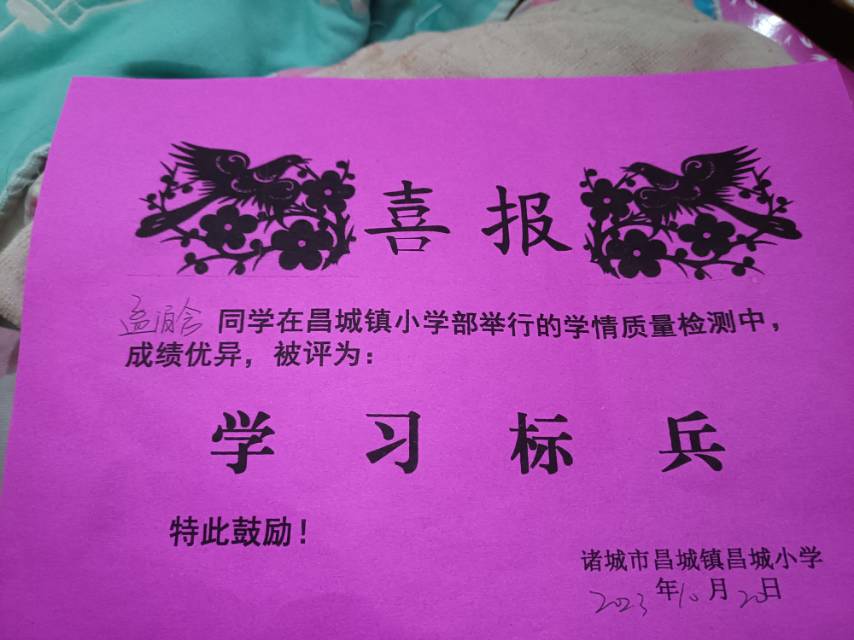 喜报
孟 同学在昌城镇小学部举行的学情质量检测中，
成绩优异，被评为：
学习标兵
特此鼓励！
诸城市昌城镇昌城小学
2023年10月20日